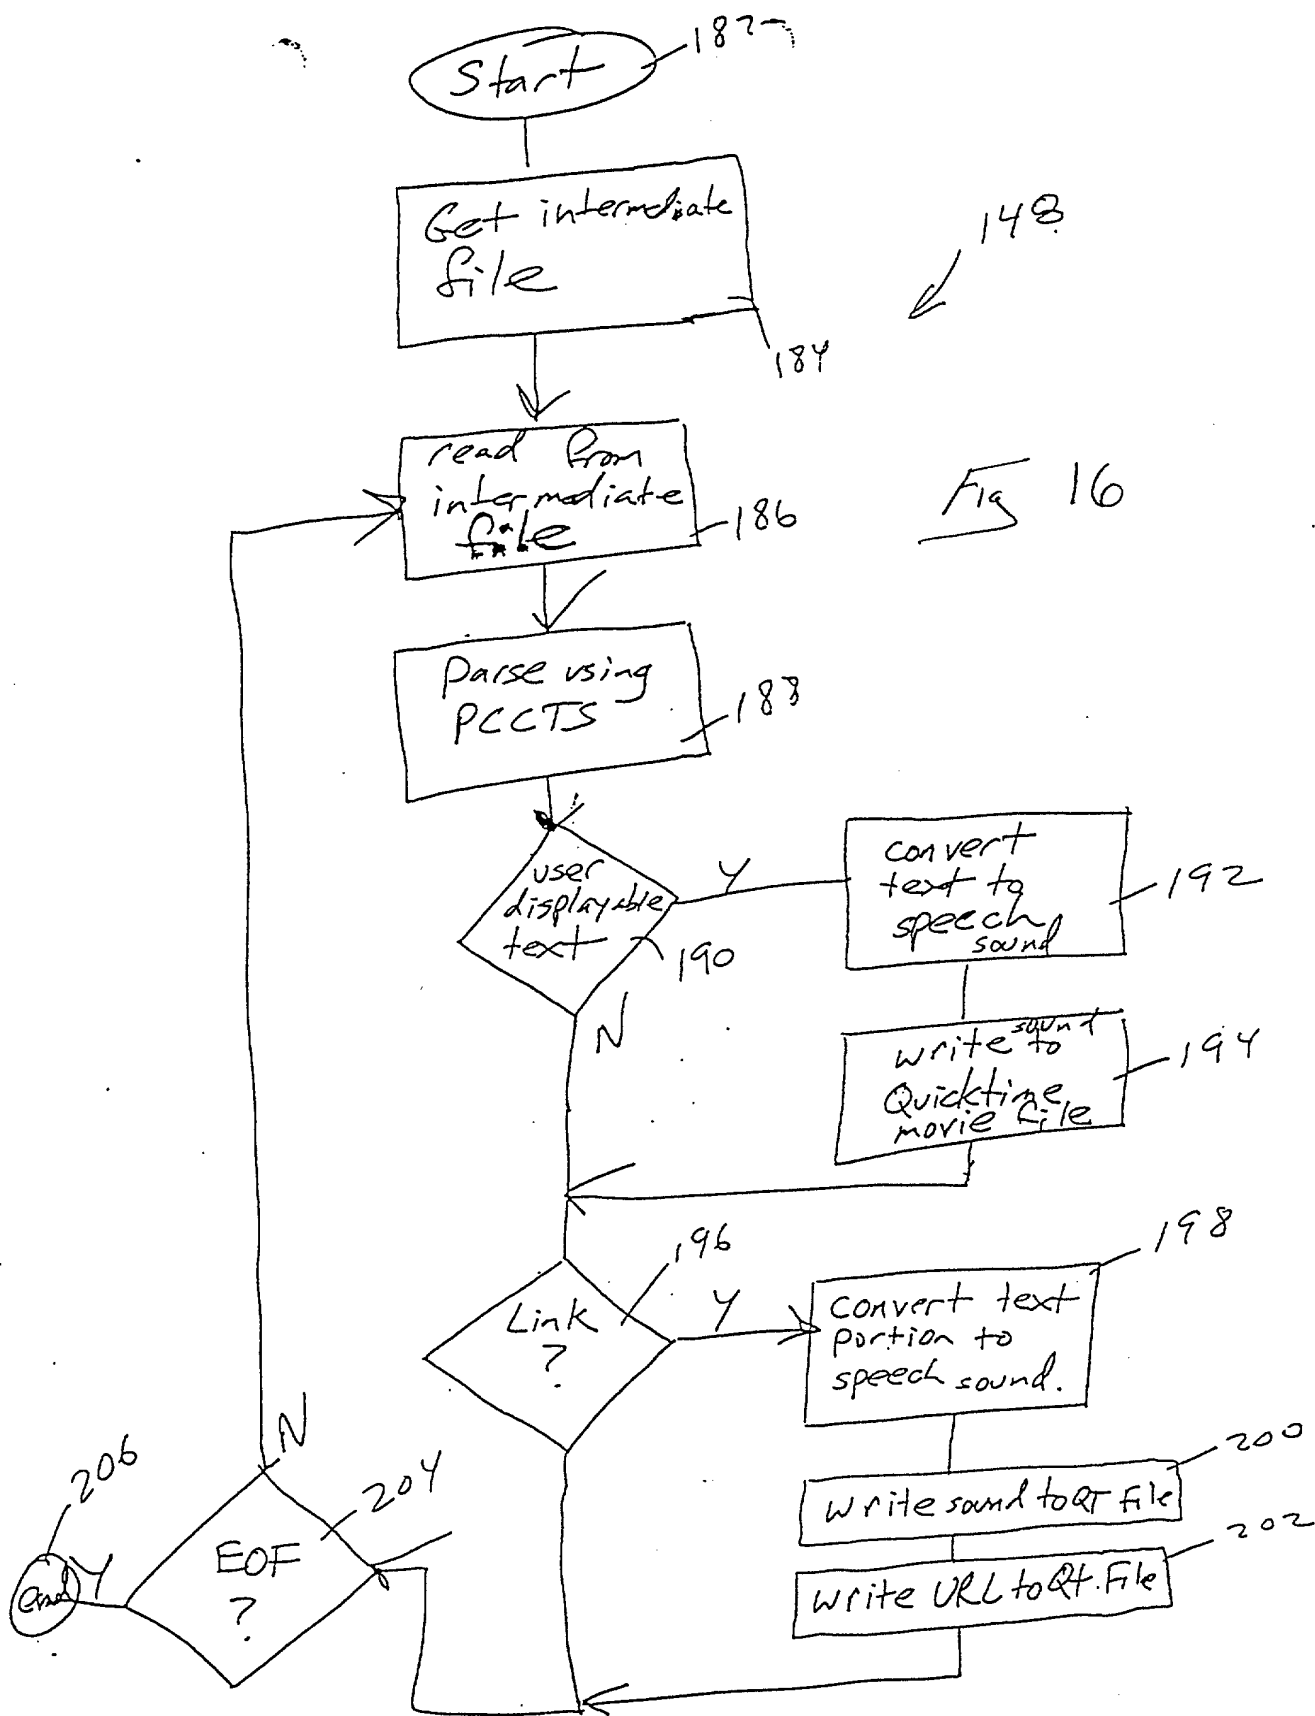 Start
182
Get intermediate
file
184
148
read from
intermediate
file
186
Fig 16
Parse using
PCCTS
188
user
displayable
text
190
Y
N
convert
text to
speech
sound
192
write sound to
Quicktime
movie file
194
Link
?
196
Y
convert text
portion to
speech sound.
198
write sound to QT file
200
write URL to Qt. File
202
EOF
?
204
N
Y
end
206